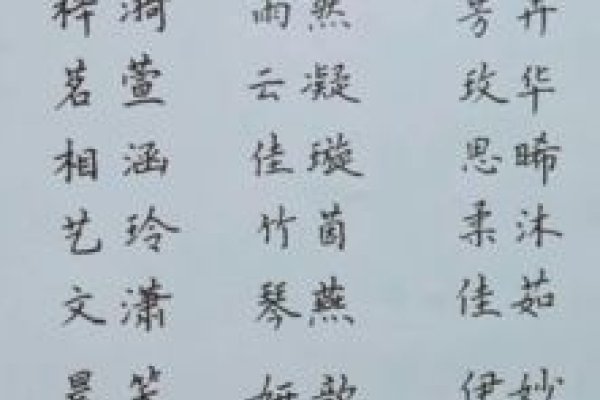 梓漪 雨然 芳卉
茗萱 云凝 玫华
相涵 佳璇 思晞
艺玲 竹茵 柔沐
文潇 琴燕 佳茹
妍歆 伊妙